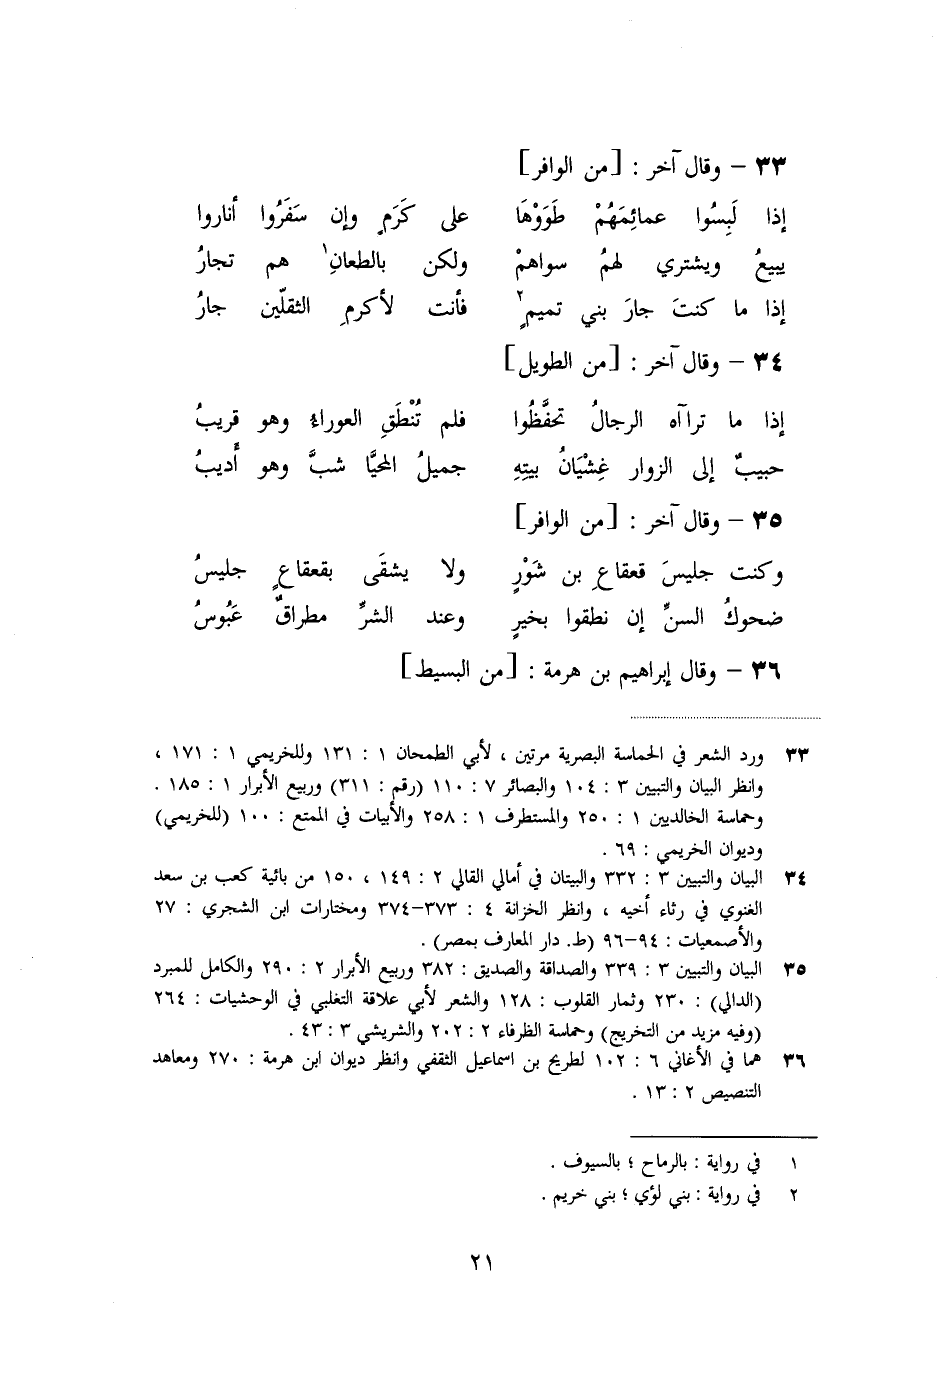 ٣٣ – وقال آخر : [من الوافر]
إذا لَبِسُوا عمائِمَهُمْ طَوَوْهَا على كَرَمٍ وإن سَفَرُوا أناروا
يبيعُ ويشتري لهمُ سواهمْ ولكن بالطعانِ١ هم تجارُ
إذا ما كنتَ جارَ بني تميمٍ٢ فأنت لأكرمِ الثقلّين جارُ
٣٤ – وقال آخر : [من الطويل]
إذا ما تراآه الرجالُ تحفَّظُوا فلم تُنْطَقِ العوراءُ وهو قريبُ
حبيبٌ إلى الزوار غِشْيَانُ بيتِهِ جميلُ المحيَّا شبَّ وهو أَديبُ
٣٥ – وقال آخر : [من الوافر]
وكنت جليسَ قعقاعِ بن شَوْرٍ ولا يشقَى بقعقاعٍ جليسُ
ضحوكُ السنِّ إن نطقوا بخيرٍ وعند الشرِّ مطراقٌ عَبُوسُ
٣٦ – وقال إبراهيم بن هرمة : [من البسيط]
٣٣ ورد الشعر في الحماسة البصرية مرتين ، لأبي الطمحان ١ : ١٣١ وللخريمي ١ : ١٧١ ،
وانظر البيان والتبيين ٣ : ١٠٤ والبصائر ٧ : ١١٠ (رقم : ٣١١) وربيع الأبرار ١ : ١٨٥ .
وحماسة الخالديين ١ : ٢٥٠ والمستطرف ١ : ٢٥٨ والأبيات في الممتع : ١٠٠ (للخريمي)
وديوان الخريمي : ٦٩ .
٣٤ البيان والتبيين ٣ : ٣٣٢ والبيتان في أمالي القالي ٢ : ١٤٩ ، ١٥٠ من بائية كعب بن سعد
الغنوي في رثاء أخيه ، وانظر الخزانة ٤ : ٣٧٣–٣٧٤ ومختارات ابن الشجري : ٢٧
والأصمعيات : ٩٤–٩٦ (ط. دار المعارف بمصر) .
٣٥ البيان والتبيين ٣ : ٣٣٩ والصداقة والصديق : ٣٨٢ وربيع الأبرار ٢ : ٢٩٠ والكامل للمبرد
(الدالي) : ٢٣٠ وثمار القلوب : ١٢٨ والشعر لأبي علاقة التغلبي في الوحشيات : ٢٦٤
(وفيه مزيد من التخريج) وحماسة الظرفاء ٢ : ٢٠٢ والشريشي ٣ : ٤٣ .
٣٦ هما في الأغاني ٦ : ١٠٢ لطريح بن اسماعيل الثقفي وانظر ديوان ابن هرمة : ٢٧٠ ومعاهد
التنصيص ٢ : ١٣ .
١ في رواية : بالرماح ؛ بالسيوف .
٢ في رواية : بني لؤي ؛ بني خريم .
٢١